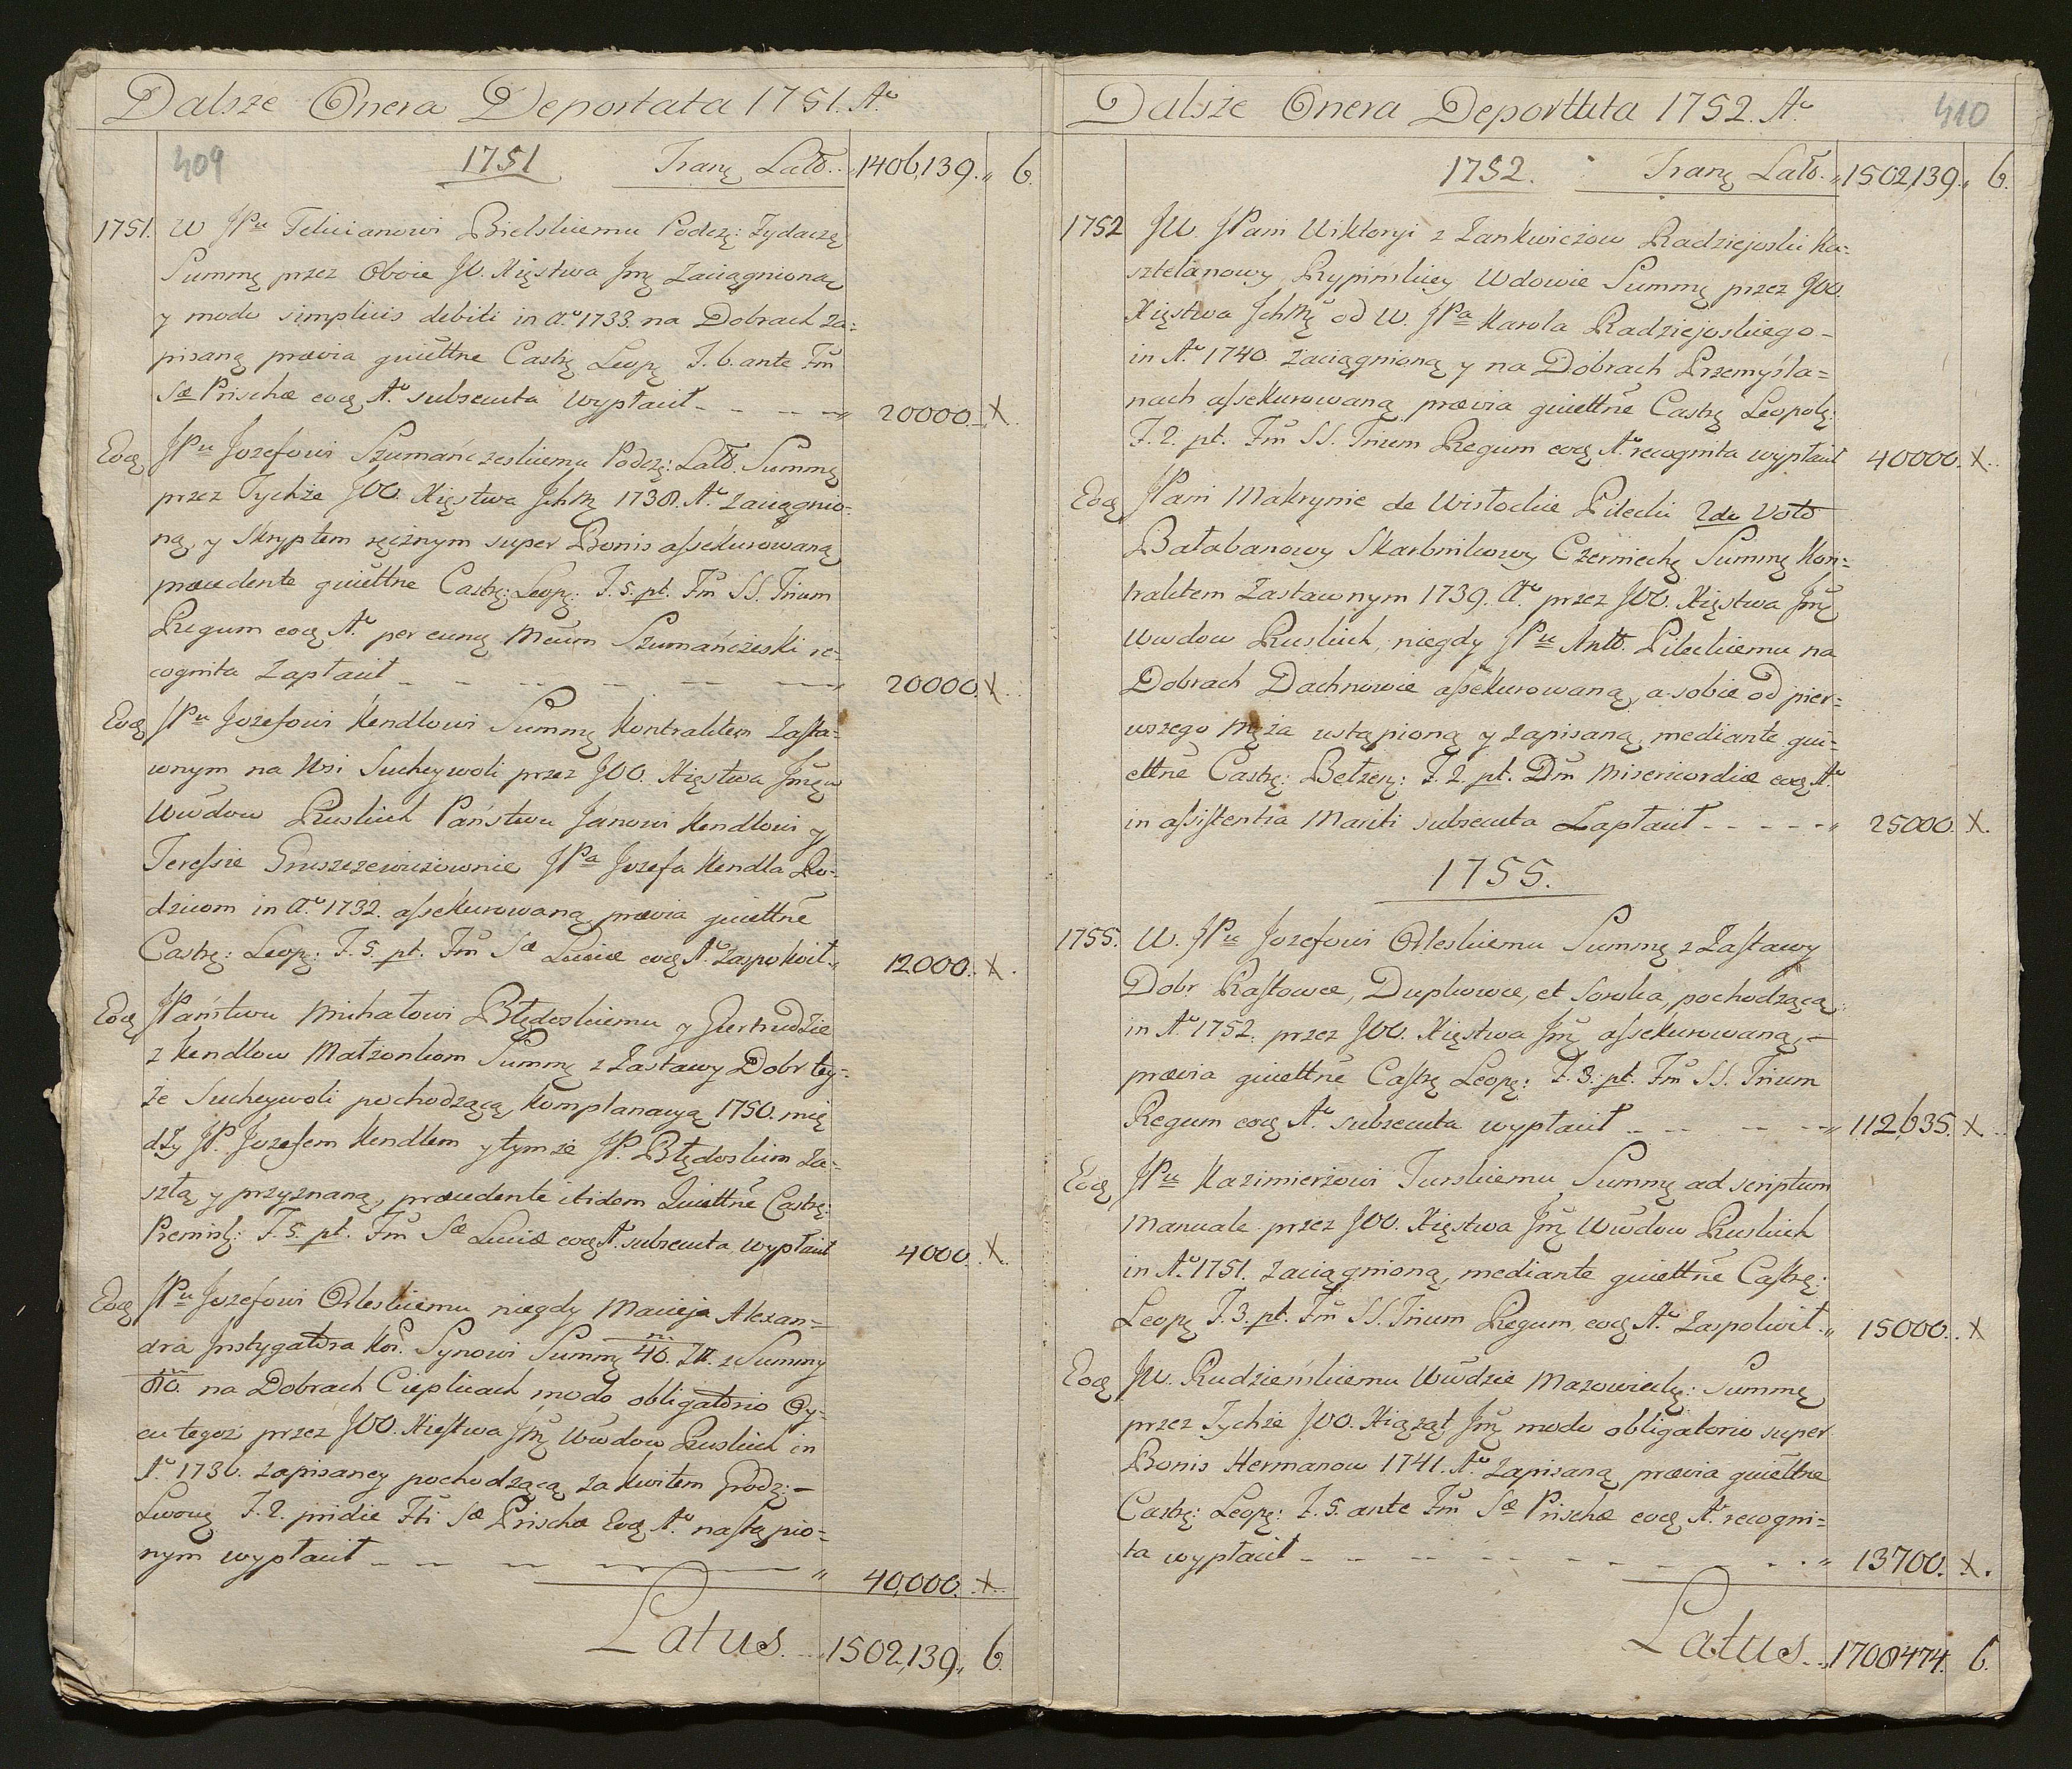 Dalsze Onera Deportata 1751. Aº
409
1751
Transę Latō. „ 1406,139. „ 6.
1751. W JPu Felicianowi Bielskiemu Podczę: Zydaczę
Summę przez Oboie JO. Xięstwa Jmę Zaciągnioną
y modo simplicis debiti in Aº 1733. na Dobrach Za=
pisaną prævia quiettne Castrę Leopę F. 6. ante Fm
Sæ Priscæ eoqe Aº subsecuta wypłacił - - - - „ 20000. X
Eoqe JPu Jozefowi Szumańczeskiemu Podczę: Latō. Summę
przez Tychże JOO. Xięstwa Jchm 1738. Aº Zaciągnio=
ną, y Skryptem ręcznym super Bonis assekurowaną
præcedente quiettne Castrę: Leopę: F. 5. pt. Fm SS. Trium
Regum eoqe Aº per eunq Meum Szumańczeski re=
cognita Zapłacił - - - - - - „ 20000. X
Eoqe JPu Jozefowi Kendlowi Summę Kontraktem Zasta=
wnym na Wsi Sucheywoli przez JOO. Xięstwa Jmęw
Wwdow Ruskich Państwu Janowi Kendlowi y
Teressie Gruszczewiczownie JPa Jozefa Kendla Ro=
dzicom in Aº 1732. assekurowaną prævia quiettne
Castrę: Leopę: F. 5. pt. Fm Sæ Luciæ eoqe Aº Zaspokoił. „ 12000. X
Eoqe JPaństwu Michałowi Błędoskiemu y Gertrudzie
z Kendlow Małzonkom Summę z Zastawy Dobr tey=
że Sucheywoli pochodzącą, Komplanacyą 1750. mię
dzy JP. Jozefem Kendlem y tymże JP. Błędoskim Za=
szłą y przyznaną, præcedente itidem Quiettne Castrę:
Premisl: F. 5. pt. Fm Sæ Luciæ eoqe Aº subsecuta wypłacił 4000. X
Eoqe JPu Jozefowi Orleskiemu niegdy Macieja Alexan=
dra Jnstygatora Kor. Synowi Summę 40. m. Zł. z Summy
80. m. na Dobrach Cieplicach modo obligatorio Oy=
cu tegoż przez JOO. Xięstwa Jmę Wwdow Ruskich in
Aº 1736. zapisaney pochodzącą za kwitem Grodz: -
Lwowę F. 2. pridie Fti Sæ Priscæ Eoqe Aº nastąpio=
nym wypłacił - - - - „ 40,000. X
Latus. „ 1502,139. „ 6.
Dalsze Onera Deporttata 1752. Aº
410
1752.
Transę Latō. „ 1502,139. „ 6.
1752 JW. JPani Wiktoryi z Zankwiczow Radziejoski Ka=
sztelanowy Rypinskiey Wdowie Summę przez JOO.
Xięstwa Jchmę od W. JPa Karola Radziejoskiego -
in Aº 1740. zaciągnioną y na Dobrach Przemyśla=
nach assekurowaną, prævia quiettne Castrę Leopolę:
F. 2. pt. Fm SS. Trium Regum eoqe Aº recognita wypłacił 40000. X
Eoqe JPani Makrynie de Wisłockie Pilecki 2do Voto
Bałabanowy Skarbnikowy Czerniechę Summę Kon=
traktem Zastawnym 1739. Aº przez JOO. Xięstwa Jmę
Wwdow Ruskich, niegdy JPu Antō. Pileckiemu na
Dobrach Dachnowie assekurowaną, a sobie od pier=
wszego Męża ustąpioną y zapisaną, mediante qui=
ettne Castrę: Bełzeń: F. 2. pt. Dm Misericordiæ eoqe Aº
in assistentia Mariti subsecuta Zapłacił - - - - „ 25000. X.
1755.
1755. W. JPu Jozefowi Orleskiemu Summę z Zastawy
Dobr Rastowce, Dupkowce, et Soroka, pochodzącą
in Aº 1752. przez JOO. Xięstwa Jmę assekurowaną, -
prævia quiettne Castrę Leopę: F. 3. pt. Fm SS. Trium
Regum eoqe Aº subsecuta wypłacił - - - - „ 112,635. X
Eoqe JPu Kazimierzowi Turskiemu Summę ad scriptum
manuale przez JOO. Xięstwa Jmę Wwdow Ruskich
in Aº 1751. zaciągnioną, mediante quiettne Castrę:
Leopę F. 3. pt. Fm SS. Trium Regum, eoqe Aº Zaspokoił. „ 15000. X
Eoqe JW. Rudzieńskiemu Wwdzie Mazowieckę: Summę
przez Tychże JOO. Xiążąt Jmę modo obligatorio super
Bonis Hermanow 1741. Aº Zapisaną prævia quiettne
Castrę: Leopę: F. 5. ante Fm Sæ Priscæ eoqe Aº recogni=
ta wypłacił - - - - - - „ 13700. X.
Latus. „ 1708474. 6.